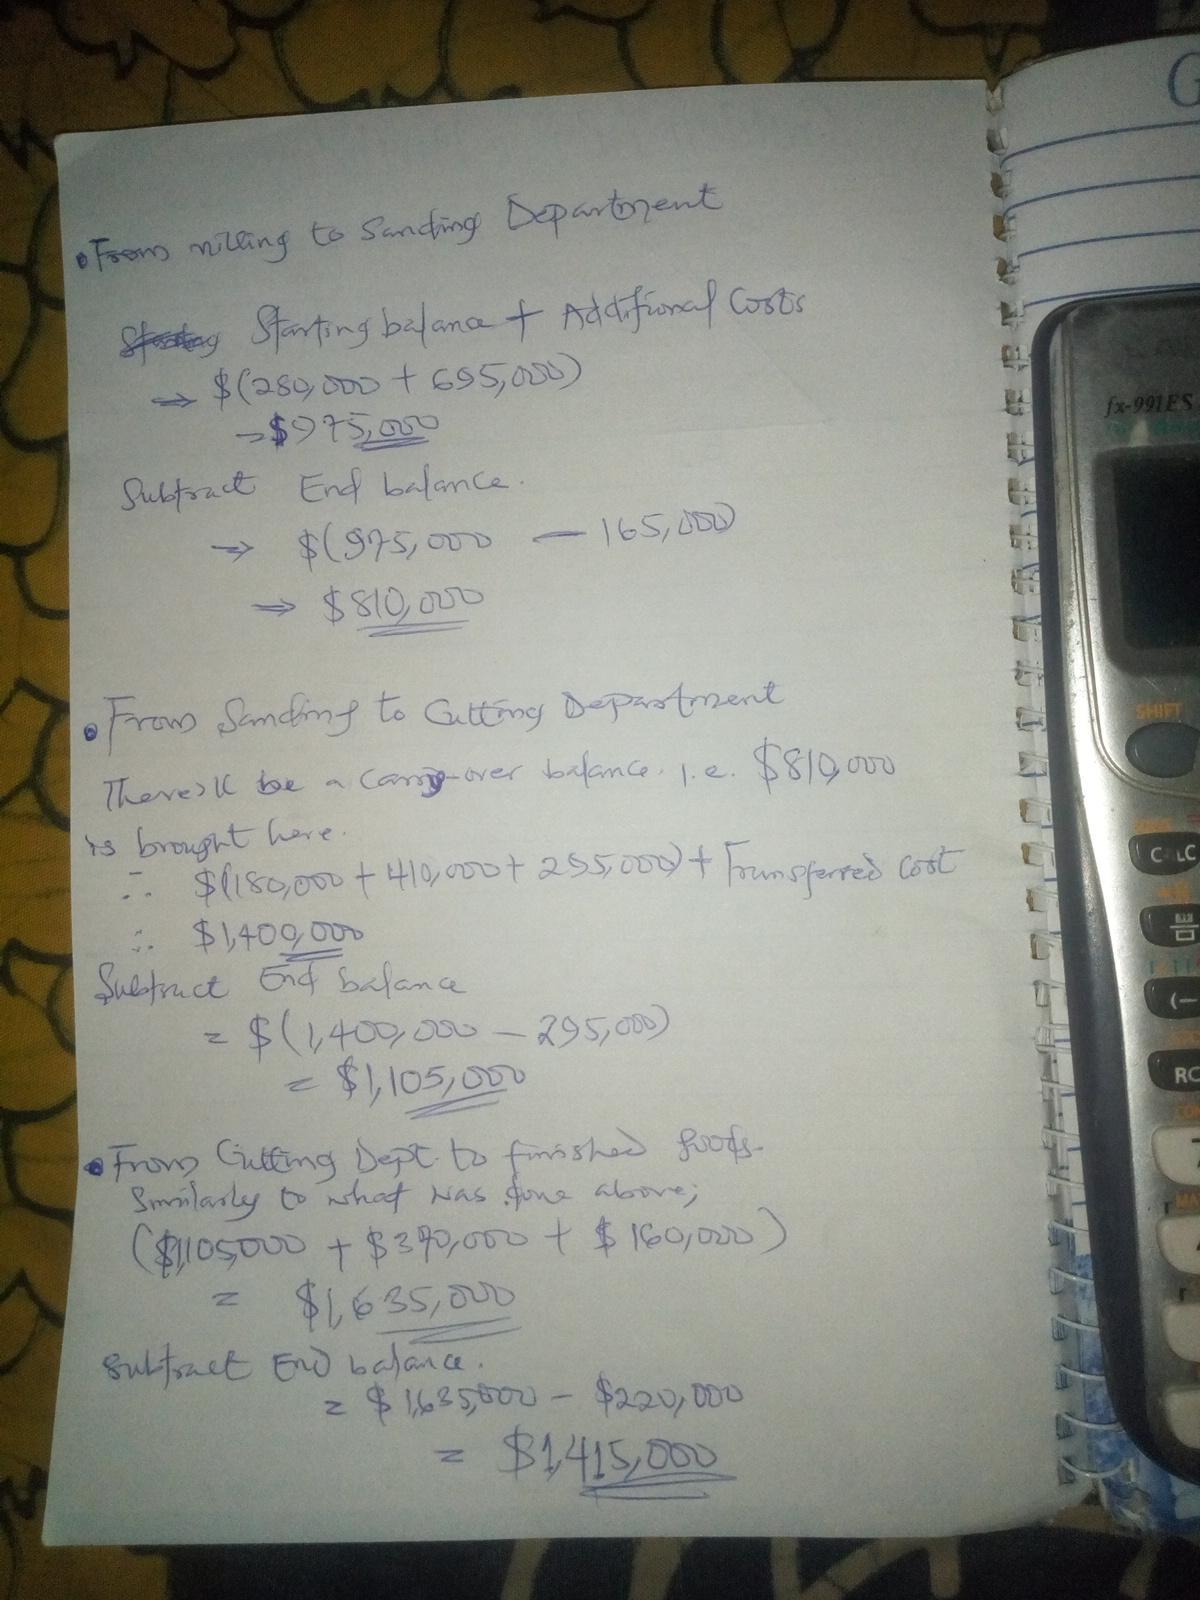 • From milling to Sanding Department
Starting balance + Additional Costs
⇒ $(280,000 + 695,000)
→ $975,000
Subtract End balance.
⇒ $(975,000 — 165,000)
⇒ $810,000
• From Sanding to Cutting Department
There'll be a carry-over balance. i.e. $810,000
is brought here.
∴ $(180,000 + 410,000 + 295,000) + Transferred cost
∴ $1,400,000
Subtract End balance
= $(1,400,000 – 295,000)
= $1,105,000
• From Cutting Dept. to finished goods.
Similarly to what was done above;
($1,105,000 + $370,000 + $160,000)
= $1,635,000
Subtract End balance.
= $1,635,000 – $220,000
= $1,415,000
G
fx-991ES
SHIFT
CALC
(–)
RC